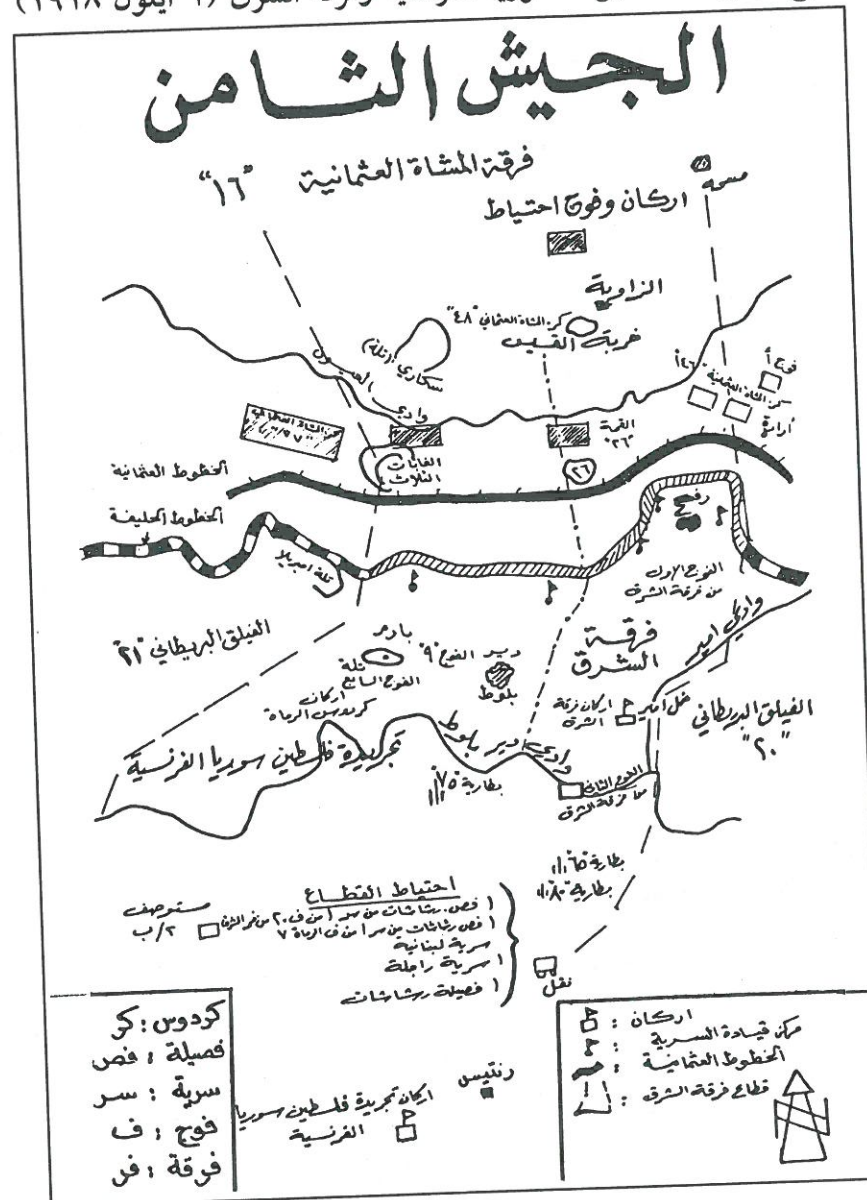 الجيش الثامن
فرقة المشاة العثمانية "١٦"
مسحه
اركان وفوج احتياط
الزاوية
كر. المشاة العثماني "٤٨"
خربة القيس
سكاري (تلة)
وادي العيون
فوج أ
كر. المشاة العثمانية "١٢٦"
أرارة
القمة "٢٦"
الغابات الثلاث
٢٦
الخطوط العثمانية
الخطوط الحليفة
رفح
تلة اميريلا
الفوج الاول
من فرقة الشرق
وادي امير
الفيلق البريطاني "٢١"
فرقة
الشرق
بادر
تلة
الفوج السابع
دير الفوج "٩"
بلوط
اركان
كردوس الرماة
اركان فرقة
الشرق
خل امير
الفيلق البريطاني
"٢٠"
تجريدة فلسطين سوريا الفرنسية
وادي دير بلوط
بطارية "٧٥"
الفوج الثاني
من فرقة الشرق
بطارية "٦٥"
بطارية "٨٠"
احتياط القطاع
١ فص. رشاشات من سر ١ من ف ٢٠ من فر الشرق
١ فص رشاشات من سر ١ من ف الرماة ٧
سرية لبنانية
١ سرية راجلة
١ فصيلة رشاشات
مستوصف
٢/ب
نقل
كردوس : كر
فصيلة : فص
سرية : سر
فوج : ف
فرقة : فر
رنتيس
اركان تجريدة فلسطين سوريا
الفرنسية
اركان :
مركز قيادة السرية :
الخطوط العثمانية :
قطاع فرقة الشرق :